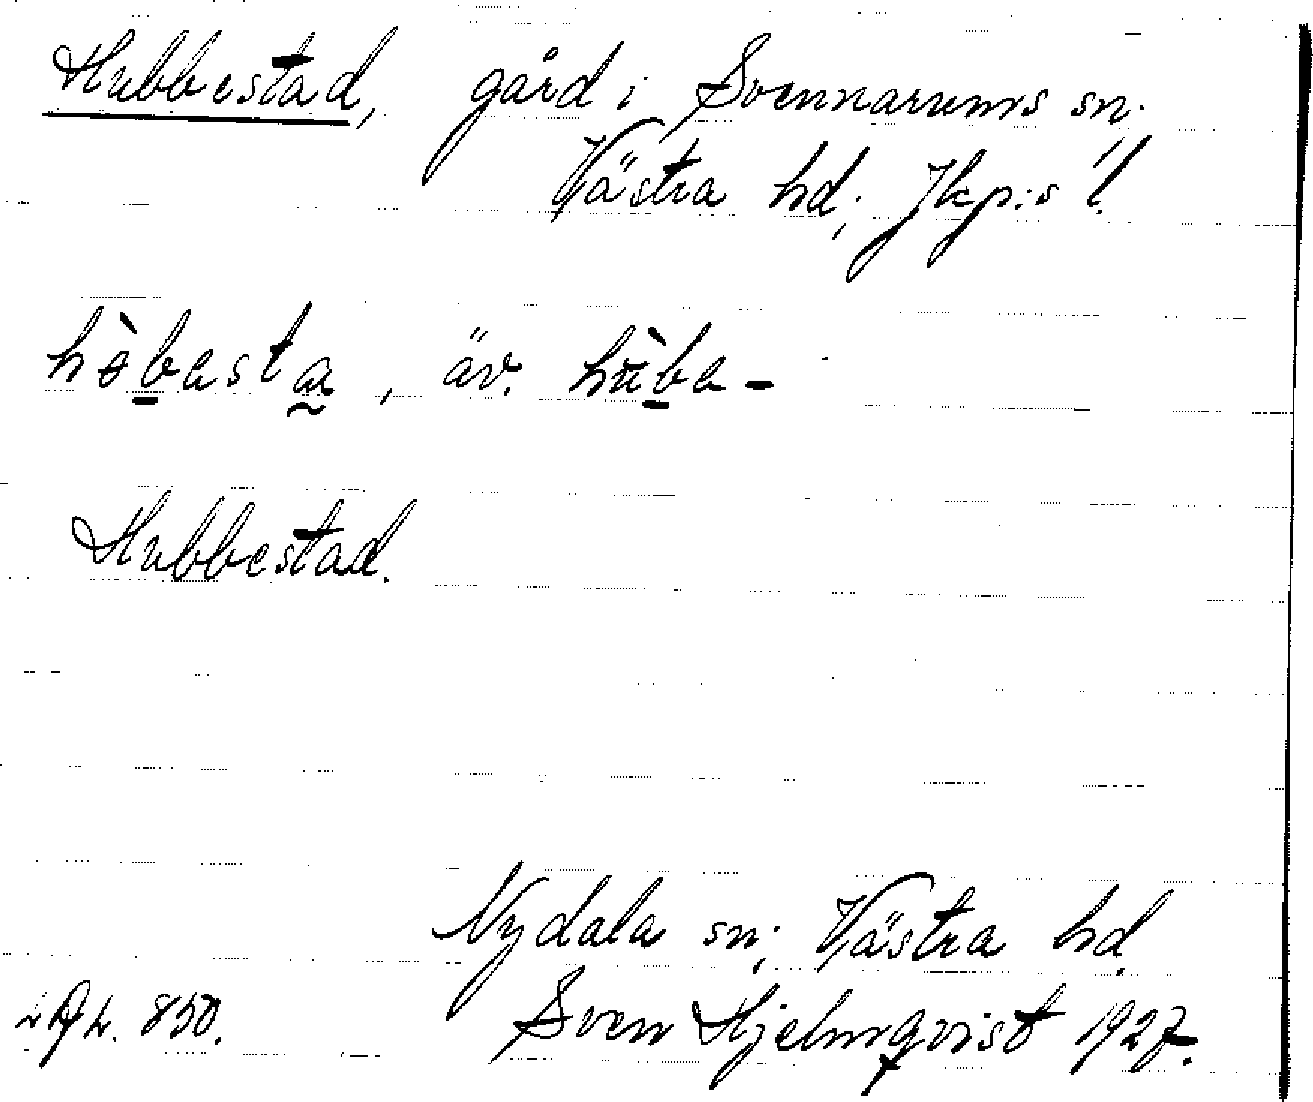 Hubbestad, gård i Svennarums sn.,
Västra hd., Jkp:s l.
hòbesta, äv. hùbe-
Hubbestad.
Nydala sn., Västra hd
Sven Hjelmqvist 1927.
850.